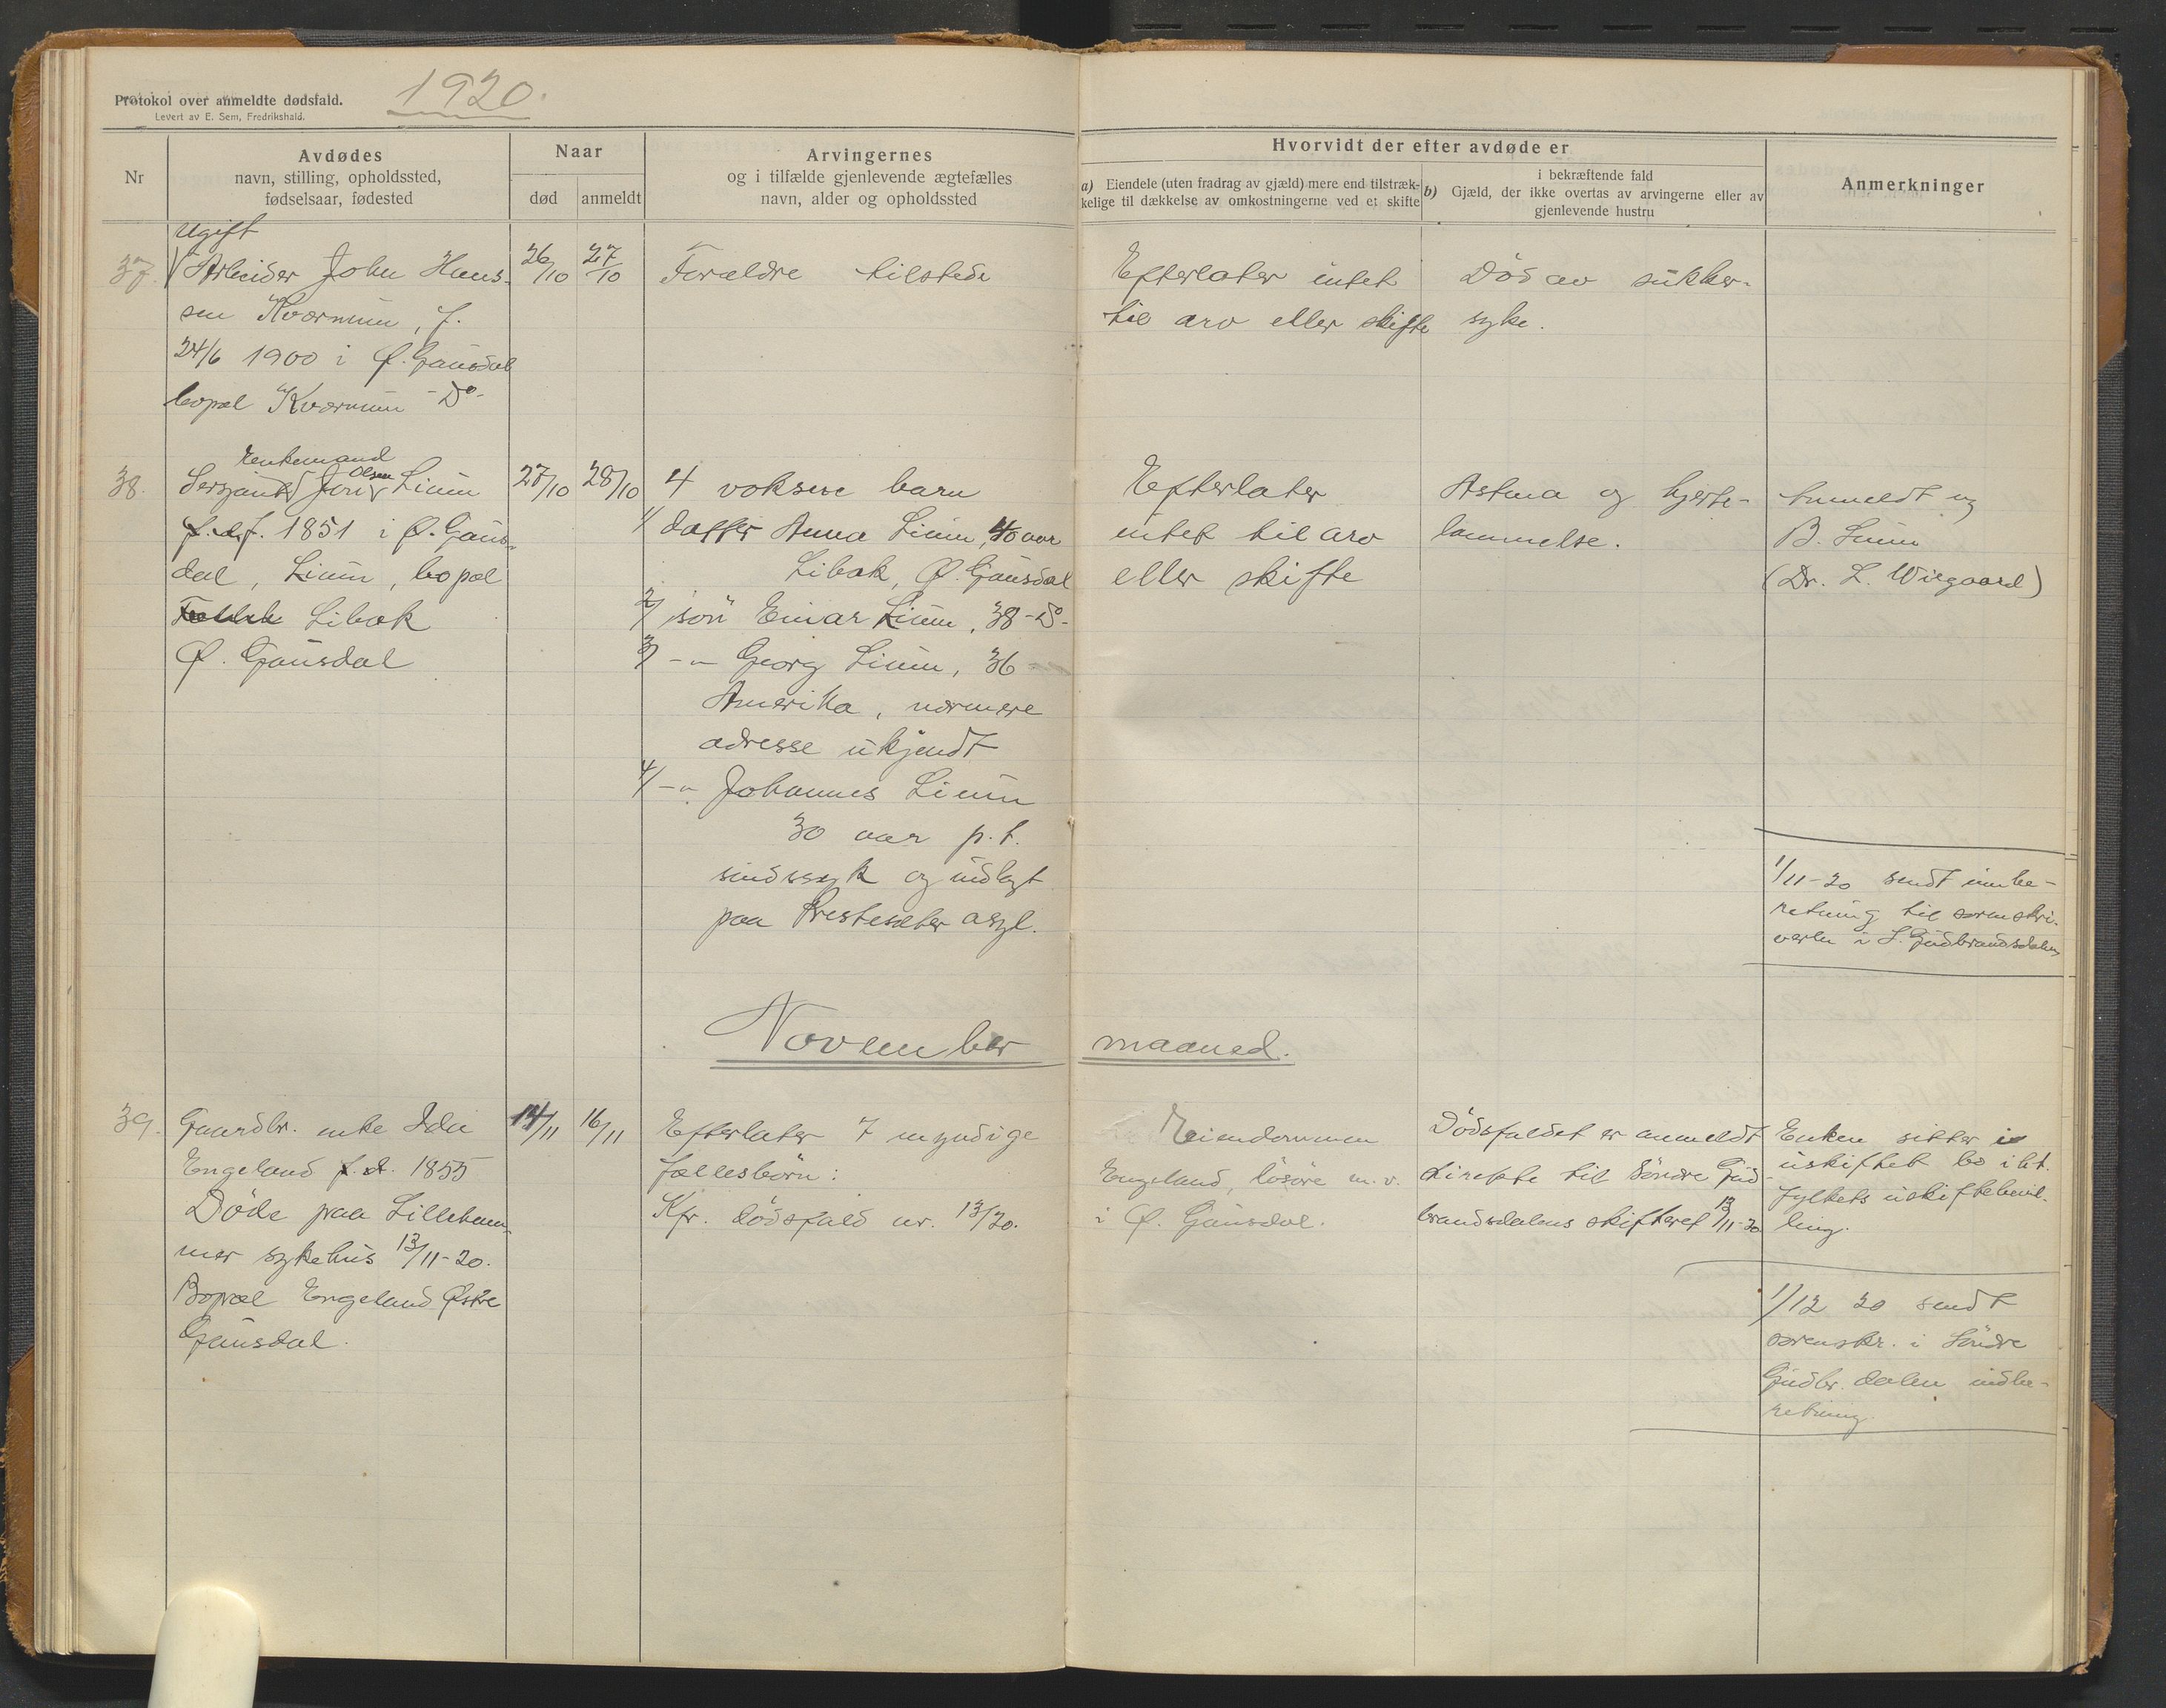 Protokol over anmeldte dødsfald.
Levert av E. Sem, Fredrikshald.
1920.
Nr
Avdødes
navn, stilling, opholdssted,
fødselsaar, fødested
Naar
død
anmeldt
Arvingernes
og i tilfælde gjenlevende ægtefælles
navn, alder og opholdssted
Hvorvidt der efter avdøde er
a) Eiendele (uten fradrag av gjæld) mere end tilstræk-
kelige til dækkelse av omkostningerne ved et skifte
i bekræftende fald
b) Gjæld, der ikke overtas av arvingerne eller av
gjenlevende hustru
Anmerkninger
37.
Ugift
Arbeider John Hans-
sen Kværnum, f.
24/6 1900 i Ø. Gausdal
bopæl Kværnum -Do-
26/10
27/10
Forældre tilstede
Efterlater intet
til arv eller skifte
Død av sukker-
syke.
38.
Enkemand
Sersjant Olsen Lium
f. 1851 i Ø. Gaus-
dal, Lium, bopæl
Libak
Ø. Gausdal
27/10
28/10
4 voksne barn
1/ datter Anna Lium, 40 aar
Libak, Ø. Gausdal
2/ søn Einar Lium, 38 -Do-
3/ -"- Georg Lium, 36
Amerika, nærmere
adresse ukjendt
4/ -"- Johannes Lium
30 aar p.t.
sindssyk og indlagt
paa Presteseter asyl.
Efterlater
intet til arv
eller skifte
Astma og hjerte-
lammelse.
Anmeldt av
B. Lium
(Dr. L. Wiegaard)
1/11-20 sendt innbe-
retning til sorenskri-
veren i S. Gudbrandsdalen
November maaned.
39.
Gaardbr. enke Ida
Engeland f. 1855
Døde paa Lilleham-
mer sykehus 13/11-20.
Bopæl Engeland Østre
Gausdal.
14/11
16/11
Efterlater 7 myndige
fællesbørn:
Kfr. dødsfald nr. 13/20.
Eiendommen
Engeland, løsøre m.v.
i Ø. Gausdal.
Dødsfaldet er anmeldt
direkte til Søndre Gud-
brandsdalens skifteret 13/11-20
Enken sitter i
uskiftet bo iht.
fylkets uskiftebevil-
ling.
1/12 20 sendt
sorenskr. i Søndre
Gudbr. dalen indbe-
retning.